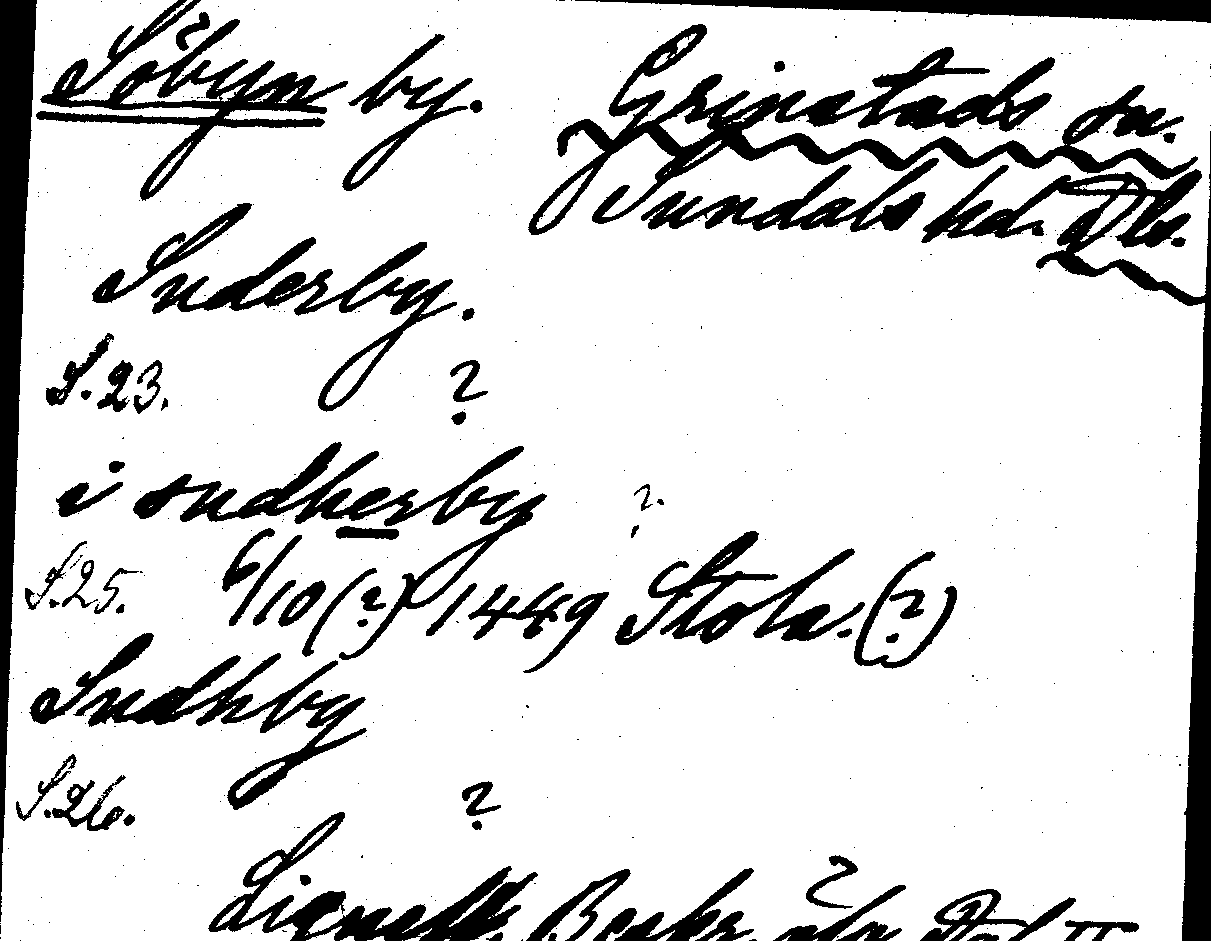 Söbyn by. Grinstads sn.
Sundals hd. Dls.
Suderby.
S.23. ?
i sudherby ?
S.25. 6/10 (?) 1449 Stola. (?)
Sudhby
S.26. ?
Lignell, Beskr. öfv. Dal II